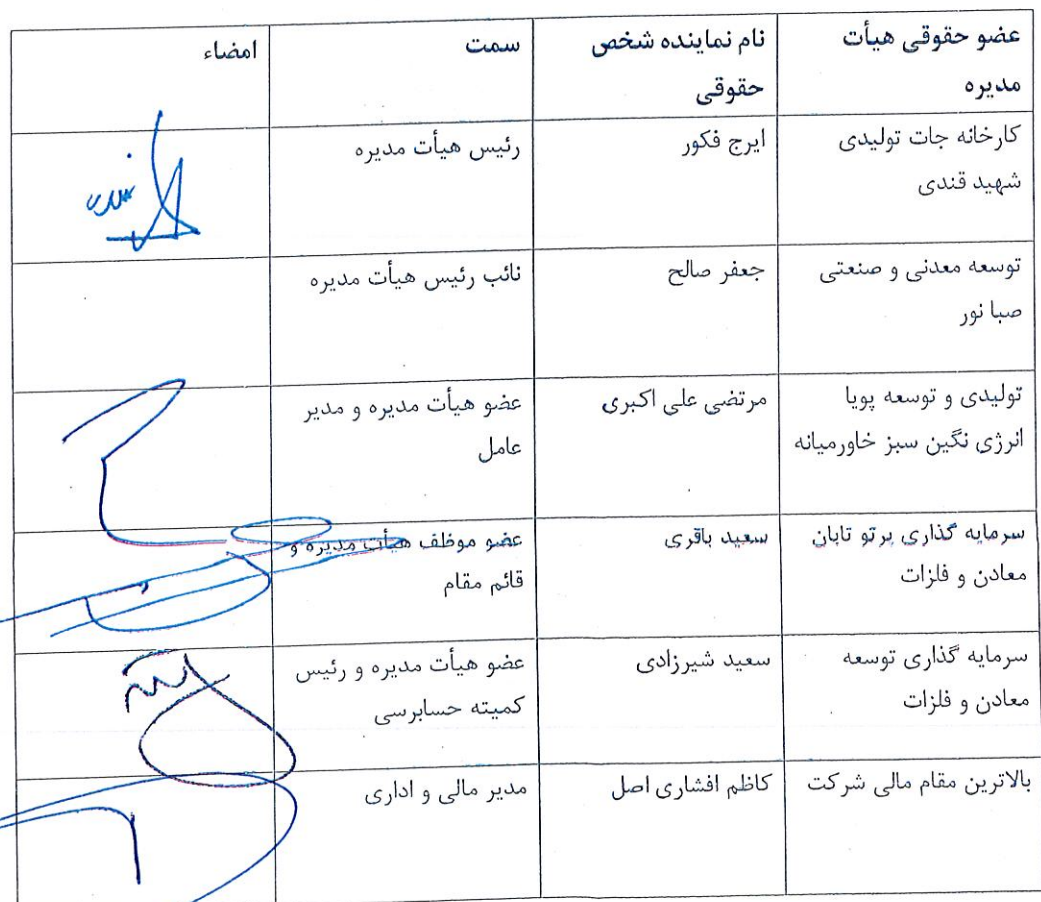 عضو حقوقی هیأت
مدیره
نام نماینده شخص
حقوقی
سمت
امضاء
کارخانه جات تولیدی
شهید قندی
ایرج فکور
رئیس هیأت مدیره
توسعه معدنی و صنعتی
صبا نور
جعفر صالح
نائب رئیس هیأت مدیره
تولیدی و توسعه پویا
انرژی نگین سبز خاورمیانه
مرتضی علی اکبری
عضو هیأت مدیره و مدیر
عامل
سرمایه گذاری پرتو تابان
معادن و فلزات
سعید باقری
عضو موظف هیأت مدیره و
قائم مقام
سرمایه گذاری توسعه
معادن و فلزات
سعید شیرزادی
عضو هیأت مدیره و رئیس
کمیته حسابرسی
بالاترین مقام مالی شرکت
کاظم افشاری اصل
مدیر مالی و اداری